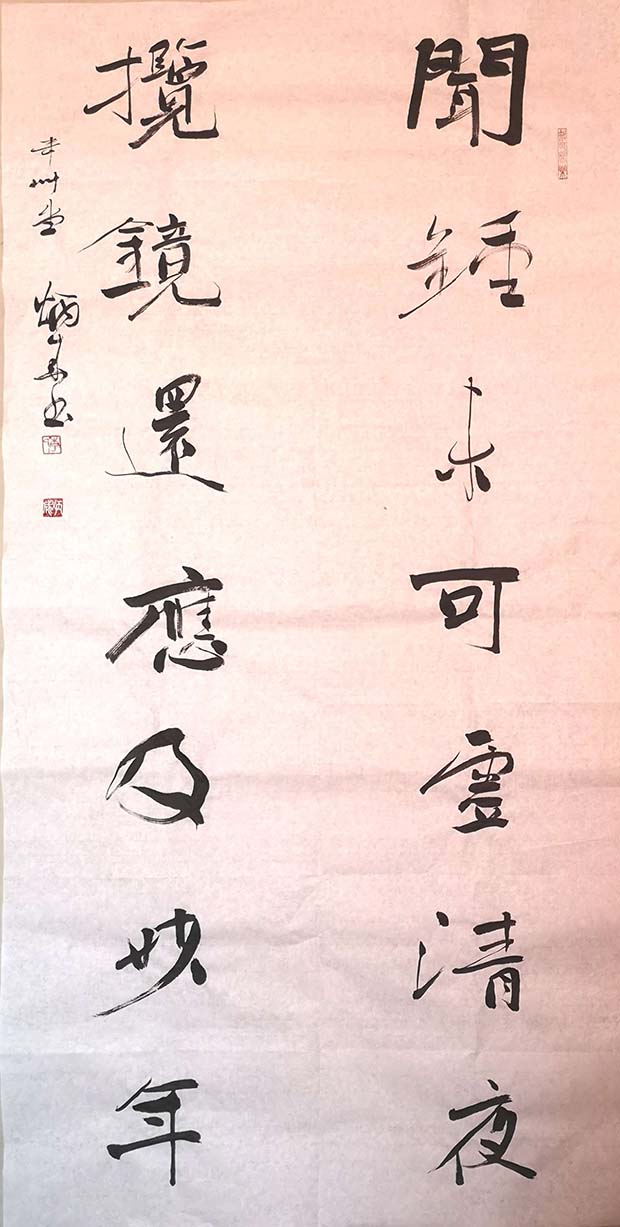 聞鍾未可虛清夜
攬鏡還應及妙年